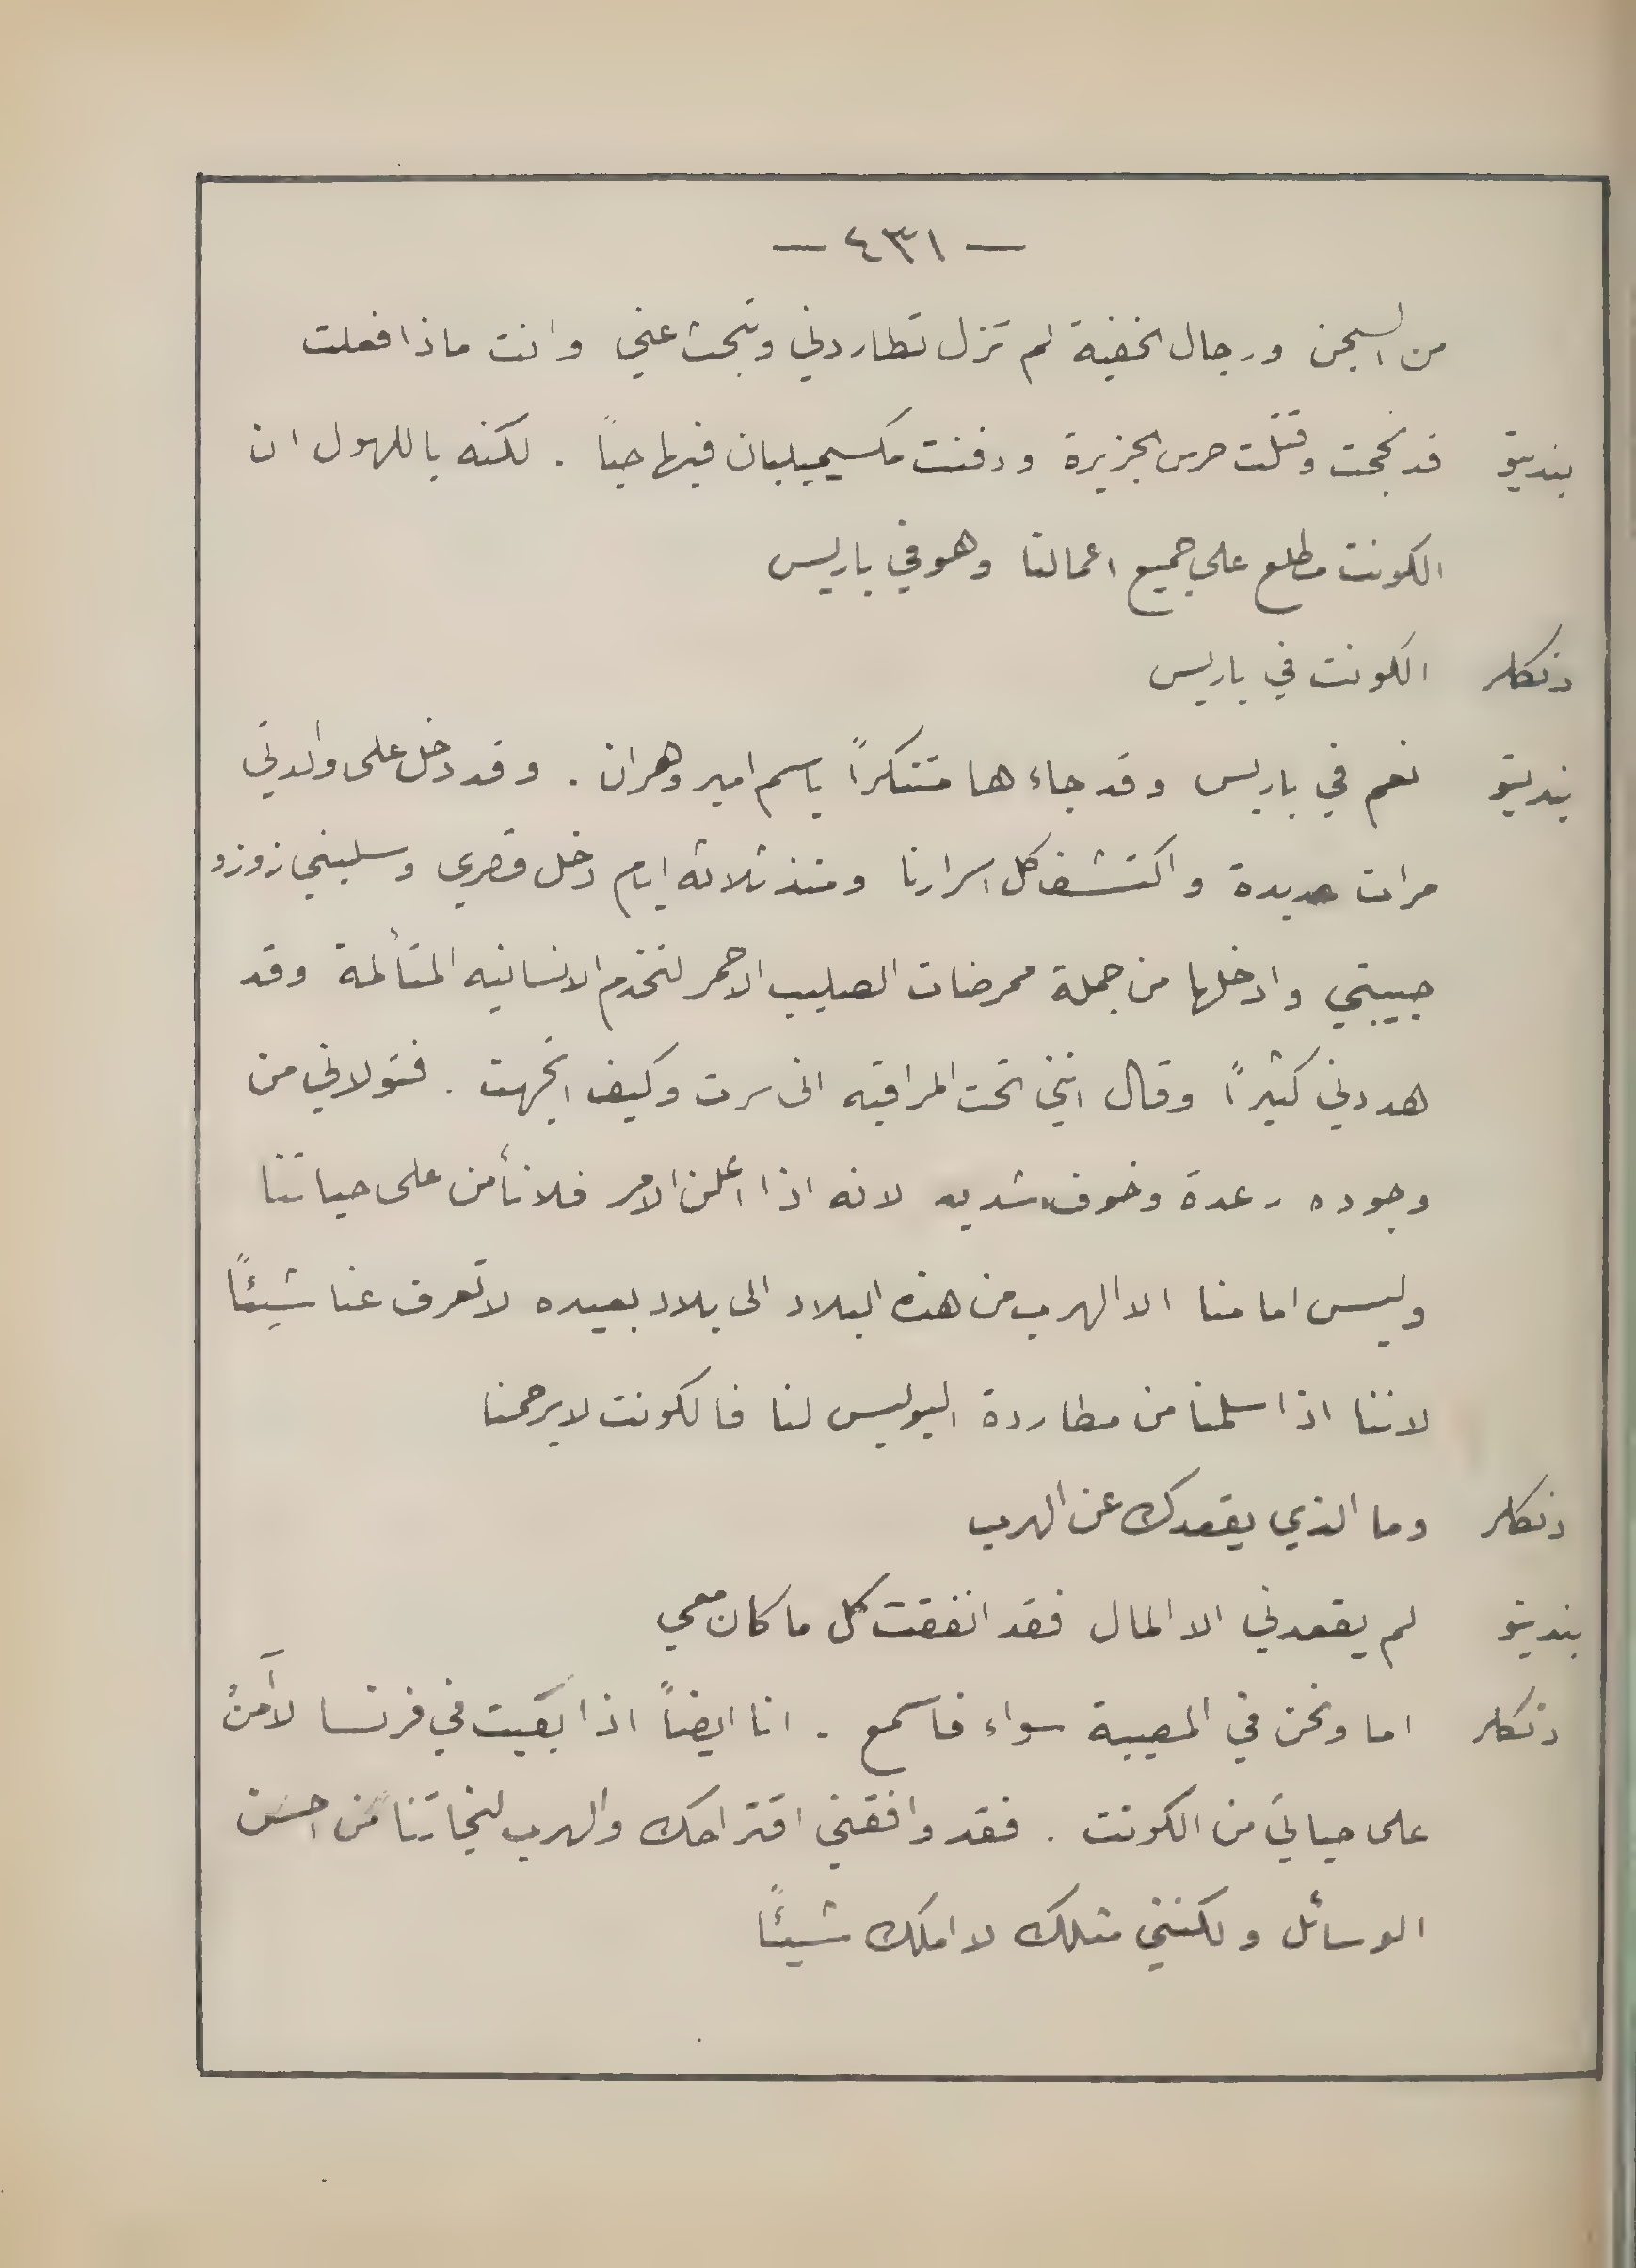 — ٤٣١ —
من السجن ورجال الخفية لم تزل تطاردني وتبحث عني وانت ماذا فعلت
بنديتو قد نجحت وقتلت حرس الجزيرة ودفنت مكسيميليان فيها حياً . لكنه ياللهول ان
الكونت مطلع على جميع اعمالنا وهو في باريس
دنكلر الكونت في باريس
بنديتو نعم في باريس وقد جاءها متنكراً باسم امير وهران . وقد دخل على والدتي
مرات عديدة واكتشف كل اسرارنا ومنذ ثلاثه ايام دخل قصري وسلبني زوزو
حبيبتي وادخلها من جملة ممرضات الصليب الاحمر لتخدم الانسانيه المتألمة وقد
هددني كثيراً وقال انني تحت المراقبه انى سرت وكيف اتجهت . فتولاني من
وجوده رعدة وخوف شديد لانه اذا اعلن الامر فلا نأمن على حياتنا
وليس امامنا الا الهرب من هذه البلاد الى بلاد بعيده لا تعرف عنا شيئاً
لاننا اذا سلمنا من مطاردة البوليس لنا فالكونت لا يرحمنا
دنكلر وما الذي يقعدك عن الهرب
بنديتو لم يقعدني الا المال فقد انفقت كل ما كان معي
دنكلر اما ونحن في المصيبة سواء فاسمع . انا ايضاً اذا بقيت في فرنسا لا آمنُ
على حياتي من الكونت . فقد وافقني اقتراحك والهرب لنجاتنا من احسن
الوسائل ولكنني مثلك لا املك شيئاً